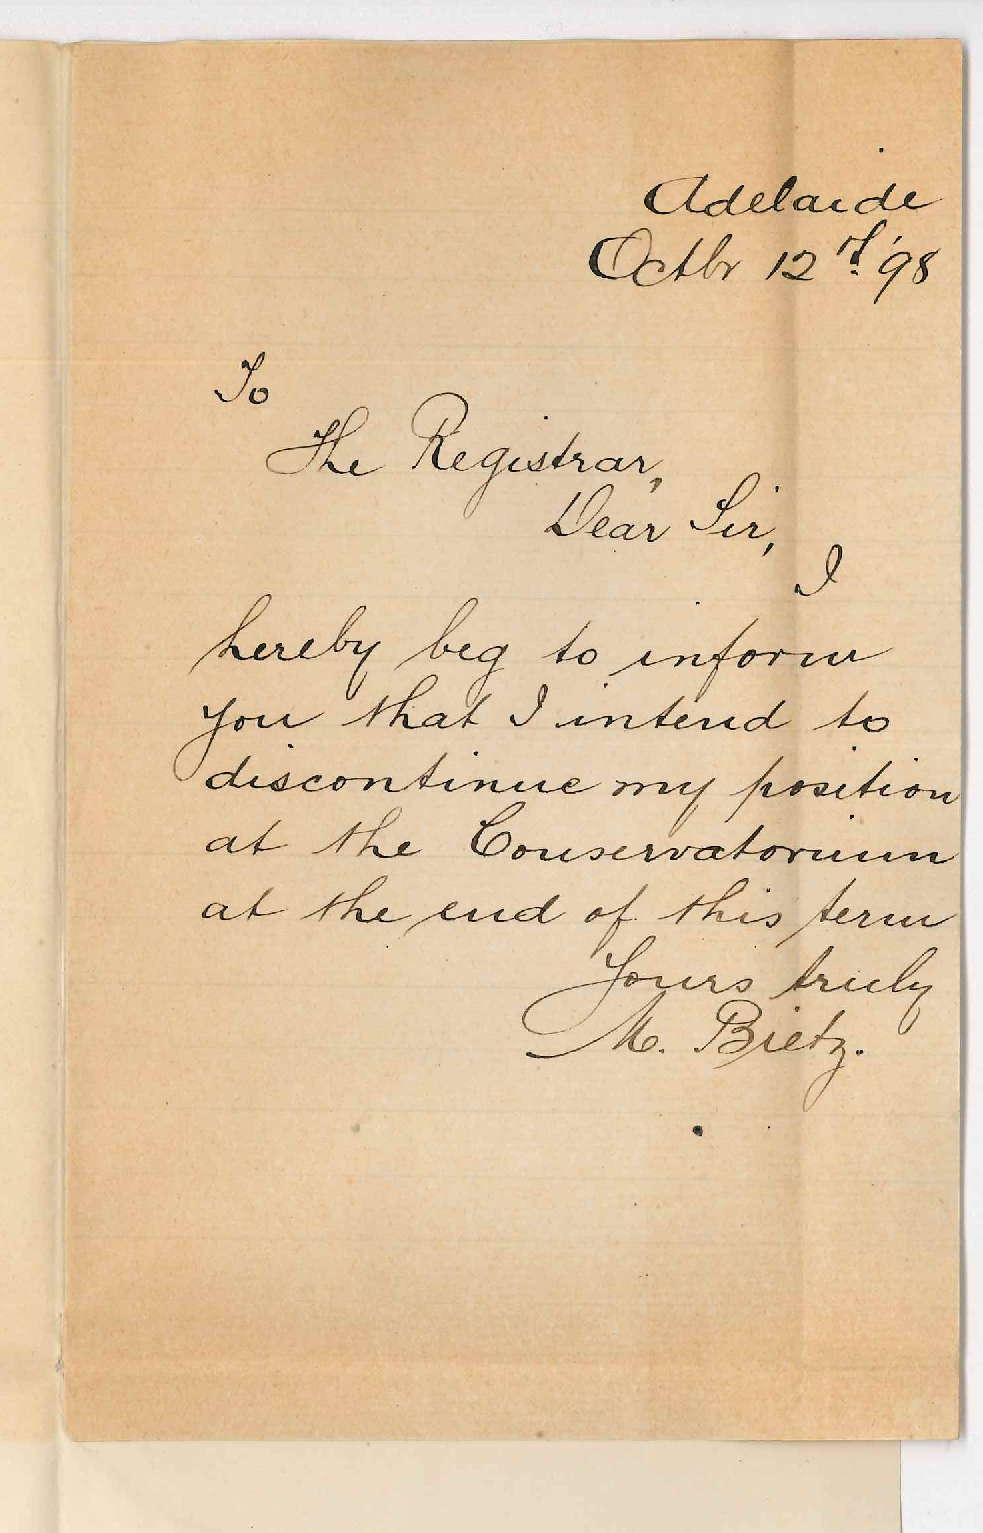 Adelaide
Octbr 12d. '98
To
The Registrar,
Dear Sir,
I
hereby beg to inform
you that I intend to
discontinue my position
at the Conservatorium
at the end of this term
Yours truly
M. Bietz.